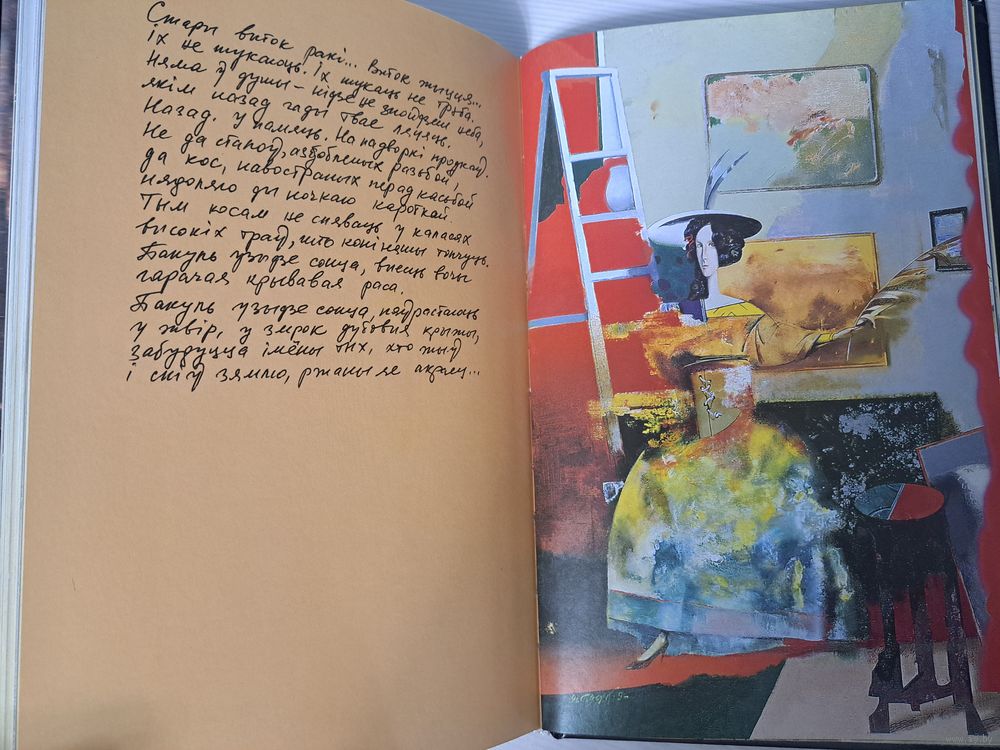 Стары виток ракі... Виток жыцця...
Іх не шукаюць. Іх шукаць не трэба.
Няма ў душы – нідзе не знойдзеш неба,
якім назад гады твае ляцяць.
Назад. У памяць. На надворкі продкаў.
Не да стапоў, азлобленых разьбой,
да кос, навостраных перад касьбой
нядоляю ды ночкаю кароткай.
Тым косам не спяваць у каласах
высокіх траў, што коні нашы топчуць.
Пакуль узыдзе сонца, высць вочы
гарачая крывавая раса.
Пакуль узыдзе сонца, паўрастаюць
у жвір, у змрок дубовыя крыжы,
забудуцца імёны тых, хто жыў
і сніў зямлю, ржаны яе акраец...